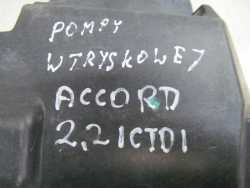 POMPY
WTRYSKOWEJ
ACCORD
2,2 ICTDI